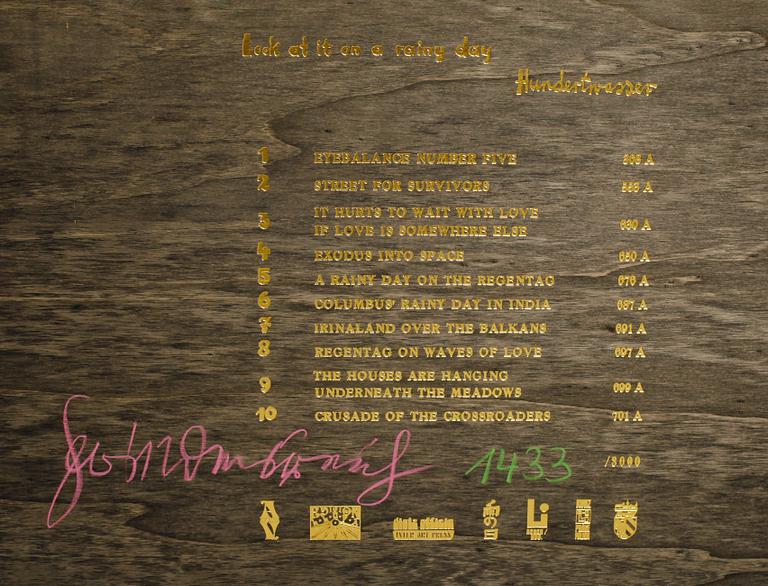 Look at it on a rainy day
Hundertwasser
1 EYEBALANCE NUMBER FIVE A
2 STREET FOR SURVIVORS A
3 IT HURTS TO WAIT WITH LOVE
IF LOVE IS SOMEWHERE ELSE 630 A
4 EXODUS INTO SPACE 650 A
5 A RAINY DAY ON THE REGENTAG 676 A
6 COLUMBUS' RAINY DAY IN INDIA 687 A
7 IRINALAND OVER THE BALKANS 691 A
8 REGENTAG ON WAVES OF LOVE 697 A
9 THE HOUSES ARE HANGING
UNDERNEATH THE MEADOWS 699 A
10 CRUSADE OF THE CROSSROADERS 701 A
1433 /3000
INTER ART PRESS